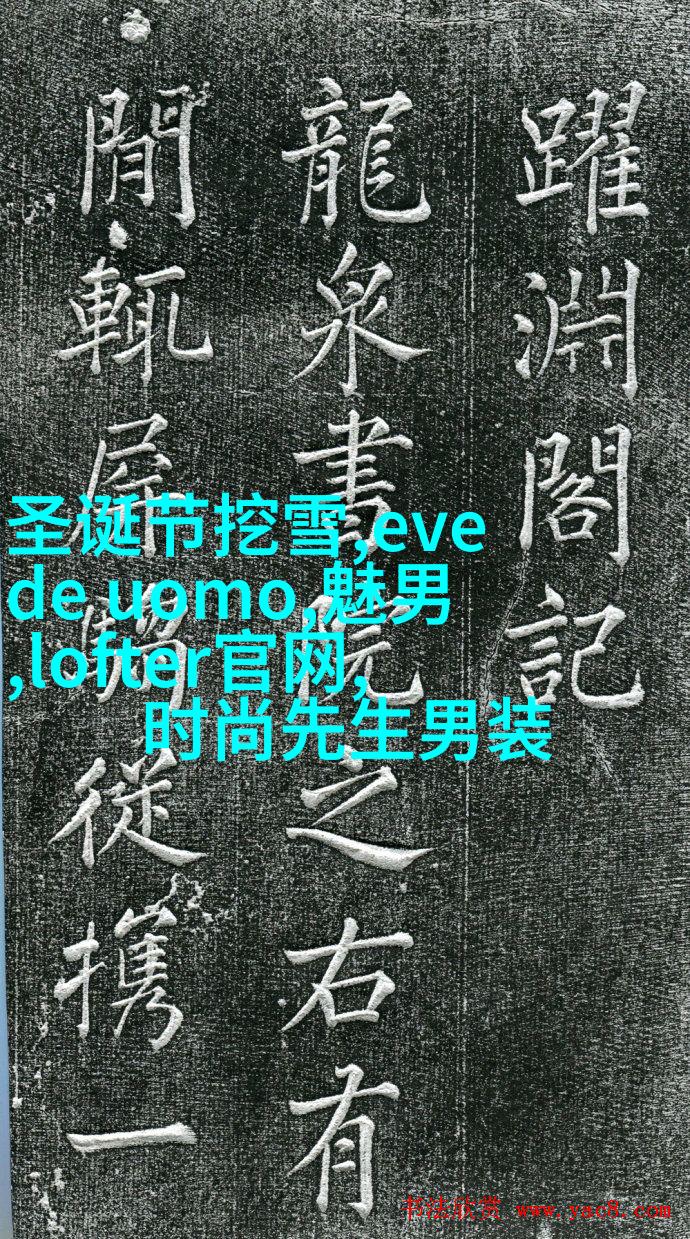 躍淵閣記
龍泉書院之右有
閒輒屏騶從攜一
圣诞节挖雪,eve
de uomo,魅男
,lofter官网,
时尚先生男装
书法欣赏 www.yac8.com